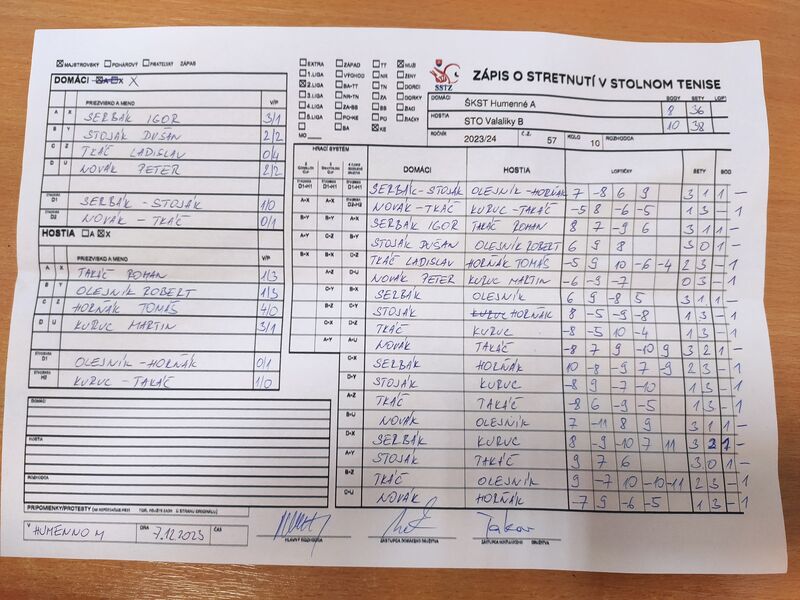 MAJSTROVSKÝ POHÁROVÝ PRIATEĽSKÝ ZÁPAS
DOMÁCI A X X
PRIEZVISKO A MENO V/P
A X SERBÁK IGOR 3/1
B Y STOJÁK DUŠAN 2/2
C Z TKÁČ LADISLAV 0/4
D U NOVÁK PETER 2/2
D1 SERBÁK - STOJÁK 1/0
D2 NOVÁK - TKÁČ 0/1
HOSTIA A X
PRIEZVISKO A MENO V/P
A X TAKÁČ ROMAN 1/3
B Y OLEJNÍK ROBERT 1/3
C Z HORŇÁK TOMÁŠ 4/0
D U KURUC MARTIN 3/1
D1 OLEJNÍK - HORŇÁK 0/1
KURUC - TAKÁČ 1/0
DOMÁCI
HOSTIA
ROZHODCA
PRIPOMIENKY/PROTESTY
V HUMENNOM DŇA 7.12.2023 ČAS
EXTRA ZÁPAD TT MUŽI
1. LIGA VÝCHOD NR ŽENY
2. LIGA BA-TT TN DORCI
3. LIGA NR-TN ZA DORKY
4. LIGA ZA-BB BB ŽIACI
5. LIGA PO-KE PO ŽIAČKY
6. LIGA BA KE
MO
SSTZ
ZÁPIS O STRETNUTÍ V STOLNOM TENISE
BODY SETY LOPT
DOMÁCI ŠKST Humenné A 8 36
HOSTIA STO Valaliky B 10 38
ROČNÍK 2023/24 Č.Z. 57 KOLO 10 ROZHODCA
HRACÍ SYSTÉM
DOMÁCI HOSTIA LOPTIČKY SETY BOD
D1-H1 D1-H1 D1-H1 SERBÁK - STOJÁK OLEJNÍK - HORŇÁK 7 -8 6 9 3 1 1 -
A-X A-X D2-H2 NOVÁK - TKÁČ KURUC - TAKÁČ -5 8 -6 -5 1 3 - 1
B-Y B-Y A-X SERBÁK IGOR TAKÁČ ROMAN 8 7 -9 6 3 1 1 -
A-Y C-Z B-Y STOJÁK DUŠAN OLEJNÍK ROBERT 6 9 8 3 0 1 -
B-X B-X C-Z TKÁČ LADISLAV HORŇÁK TOMÁŠ -5 9 10 -6 -4 2 3 - 1
A-Z D-U NOVÁK PETER KURUC MARTIN -6 -9 -7 0 3 - 1
C-Y B-X SERBÁK OLEJNÍK 6 9 -8 5 3 1 1 -
B-Z C-Z STOJÁK KURUC HORŇÁK 8 -5 -9 -8 1 3 - 1
C-X TKÁČ KURUC -8 -5 10 -4 1 3 - 1
A-Y A-U NOVÁK TAKÁČ -8 7 9 -10 9 3 2 1 -
C-X SERBÁK HORŇÁK 10 -8 -9 7 -9 2 3 - 1
D-Y STOJÁK KURUC -8 9 -7 -10 1 3 - 1
A-Z TKÁČ TAKÁČ -8 6 -9 -5 1 3 - 1
B-U NOVÁK OLEJNÍK 7 -11 8 9 3 1 1 -
D-X SERBÁK KURUC 8 -9 -10 7 11 3 2 1 -
A-Y STOJÁK TAKÁČ 9 7 6 3 0 1 -
B-Z TKÁČ OLEJNÍK 9 -7 10 -10 -11 2 3 - 1
C-U NOVÁK HORŇÁK -7 9 -6 -5 1 3 - 1
HLAVNÝ ROZHODCA ZÁSTUPCA DOMÁCEHO DRUŽSTVA ZÁSTUPCA HOSŤUJÚCEHO DRUŽSTVA